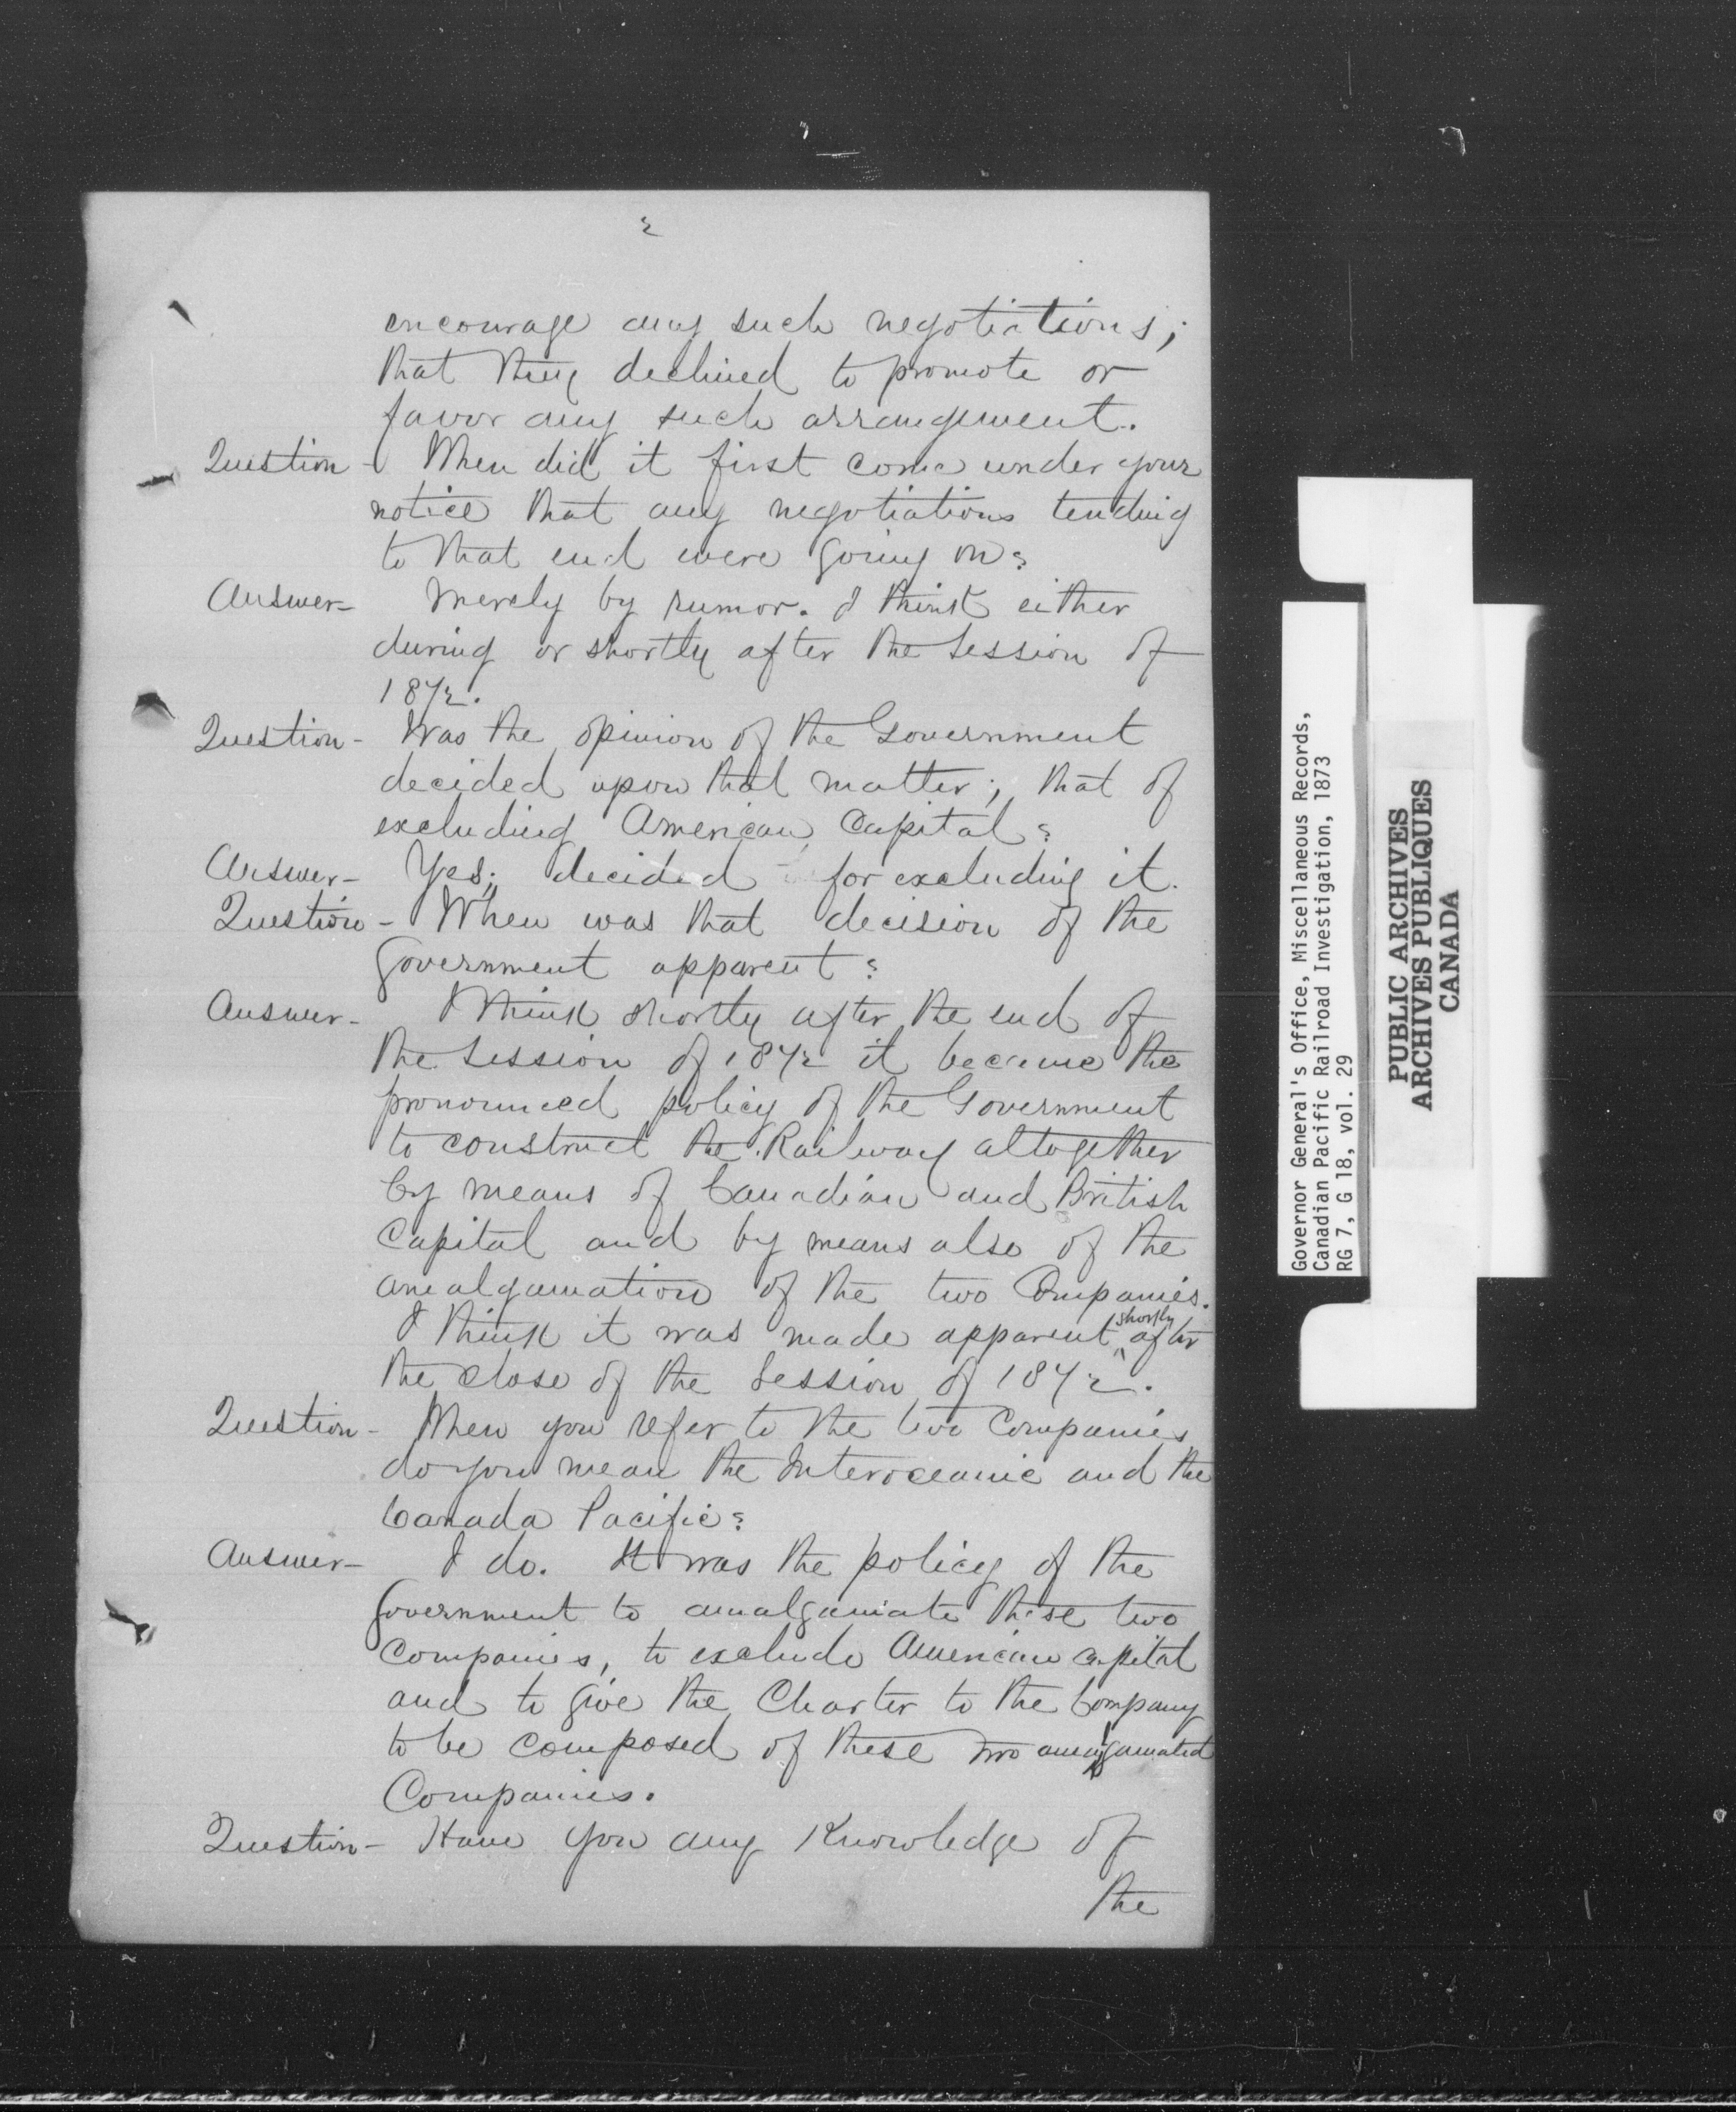 2
encourage any such negotiations;
that they declined to promote or
favor any such arrangement.
Question - When did it first come under your
notice that any negotiations tending
to that end were going on?
Answer - Merely by rumor. I think either
during or shortly after the Session of
1872.
Question - Was the opinion of the Government
decided upon that matter; that of
excluding American Capital?
Answer - Yes; decided for excluding it.
Question - When was that decision of the
Government apparent?
Answer - I think shortly after the end of
the Session of 1872 it became the
pronounced policy of the Government
to construct the Railway altogether
by means of Canadian and British
Capital and by means also of the
amalgamation of the two Companies.
I think it was made apparent shortly after
the close of the Session of 1872.
Question - When you refer to the two Companies
do you mean the Interoceanic and the
Canada Pacific?
Answer - I do. It was the policy of the
Government to amalgamate these two
Companies, to exclude American capital
and to give the Charter to the Company
to be composed of these two amalgamated
Companies.
Question - Have you any Knowledge of
the
Governor General's Office, Miscellaneous Records,
Canadian Pacific Railroad Investigation, 1873
RG 7, G 18, vol. 29
PUBLIC ARCHIVES
ARCHIVES PUBLIQUES
CANADA